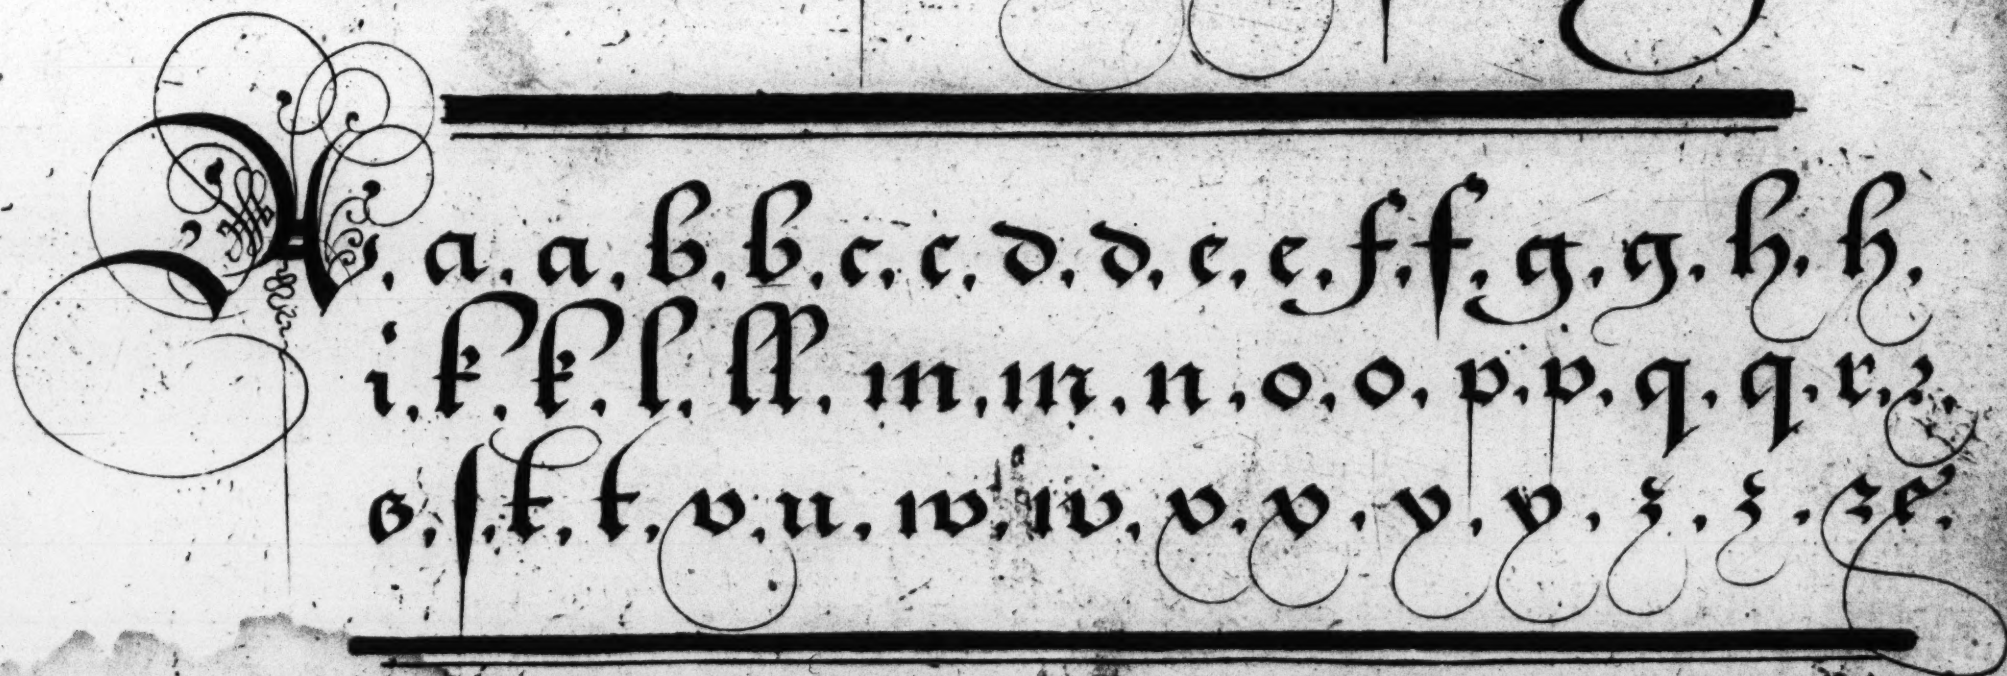 A, a. a. b. b. c. c. d. d. e. e. f. f. g. g. h. h.
i. k. k. l. ll. m. m. n. o. o. p. p. q. q. r. ꝛ.
s. ſ. t. t. v. u. w. w. x. x. y. y. z. z. ꝛc.